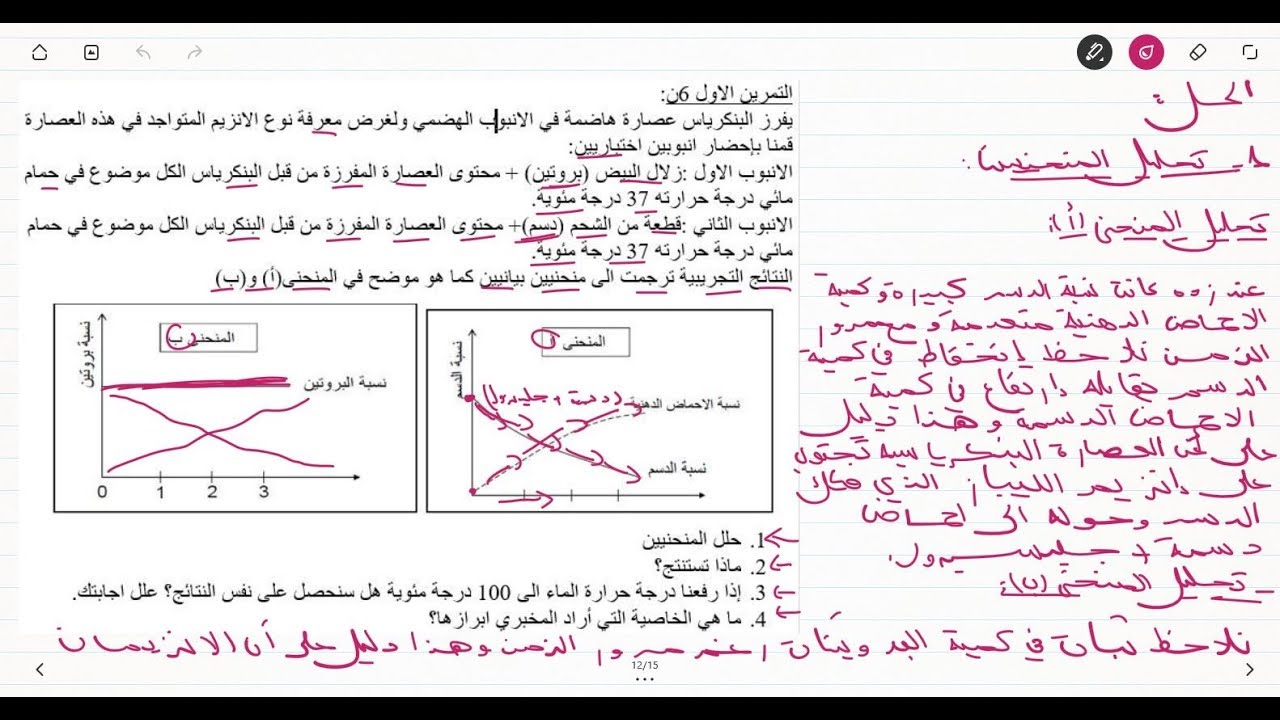 التمرين الاول 6ن:
يفرز البنكرياس عصارة هاضمة في الانبوب الهضمي ولغرض معرفة نوع الانزيم المتواجد في هذه العصارة
قمنا بإحضار انبوبين اختباريين:
الانبوب الاول :زلال البيض (بروتين) + محتوى العصارة المفرزة من قبل البنكرياس الكل موضوع في حمام
مائي درجة حرارته 37 درجة مئوية.
الانبوب الثاني :قطعة من الشحم (دسم)+ محتوى العصارة المفرزة من قبل البنكرياس الكل موضوع في حمام
مائي درجة حرارته 37 درجة مئوية.
النتائج التجريبية ترجمت الى منحنيين بيانيين كما هو موضح في المنحنى(أ) و(ب)
المنحنى أ
نسبة الدسم
نسبة الاحماض الدهنية
نسبة الدسم
المنحنى ب
نسبة بروتين
نسبة البروتين
0 1 2 3
1. حلل المنحنيين
2. ماذا تستنتج؟
3. إذا رفعنا درجة حرارة الماء الى 100 درجة مئوية هل سنحصل على نفس النتائج؟ علل اجابتك.
4. ما هي الخاصية التي أراد المخبري ابرازها؟
الحل:
1- تحليل المنحنيين:
تحليل المنحنى (أ):
عند ز=0 كانت نسبة الدسم كبيرة وكمية
الاحماض الدهنية منعدمة و مع مرور
الزمن نلاحظ إنخفاظ في كمية
الدسم مقابله إرتفاع في كمية
الاحماض الدسمة و هذا دليل
على أن العصارة البنكرياسية تحتوي
على إنزيم الليباز الذي فكك
الدسم وحوله الى احماض
دسمة + جليسيرول.
- تحليل المنحنى (ب):
نلاحظ ثبات في كمية البروتينات رغم مرور الزمن وهذا دليل على أن الانزيمات
12/15